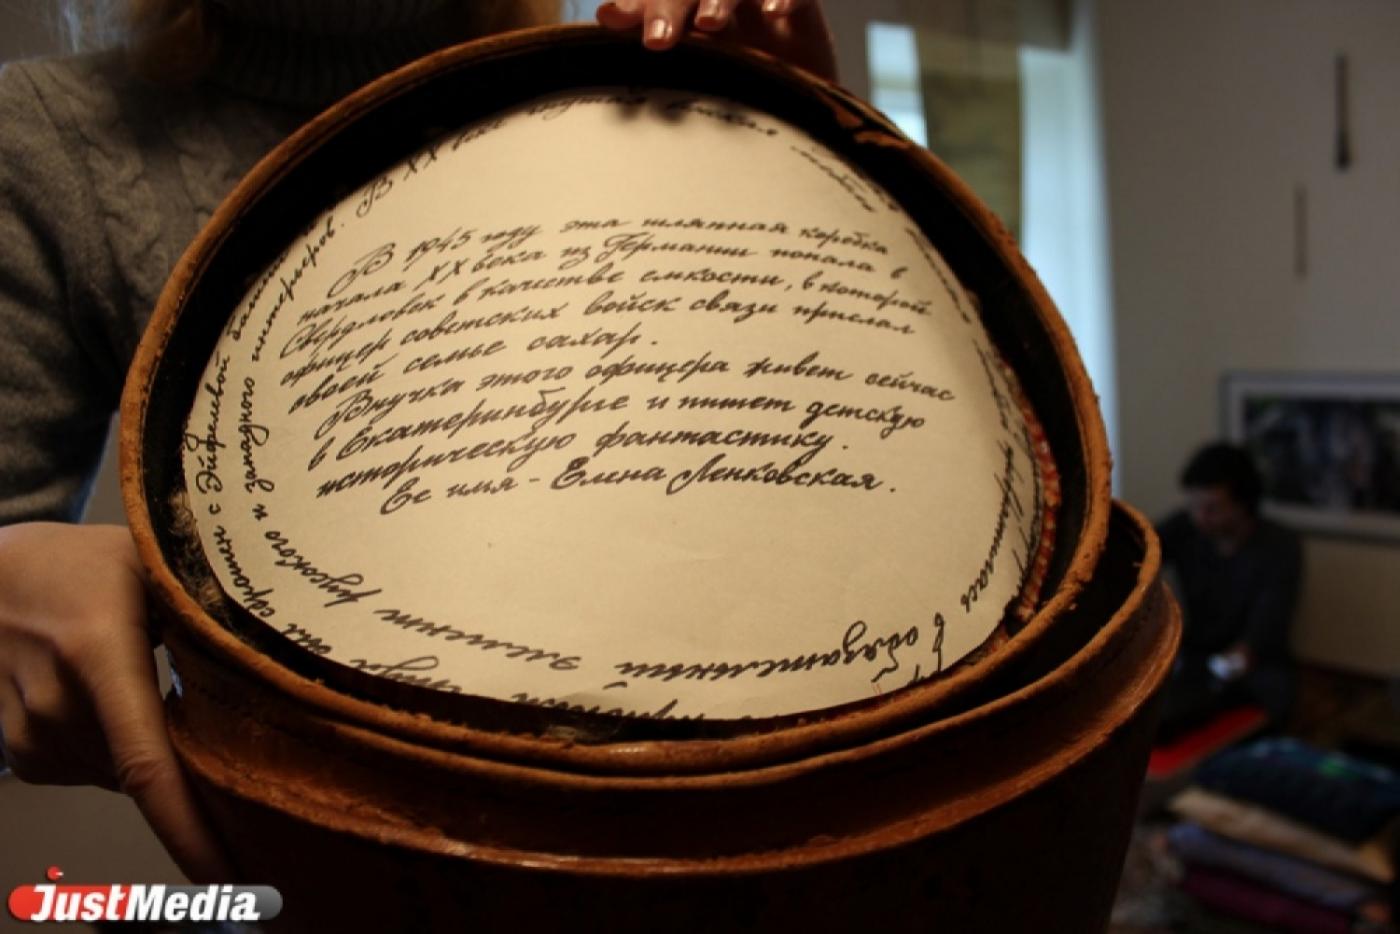 В 1945 году эта шляпная коробка
начала XX века из Германии попала в
Свердловск в качестве емкости, в которой
офицер советских войск связи прислал
своей семье сахар.
Внучка этого офицера живет сейчас
в Екатеринбурге и пишет детскую
историческую фантастику.
Ее имя - Елена Ленковская.
в обязательный элемент русского и западного интерьеров. В XX веке
с Эйфелевой
JustMedia